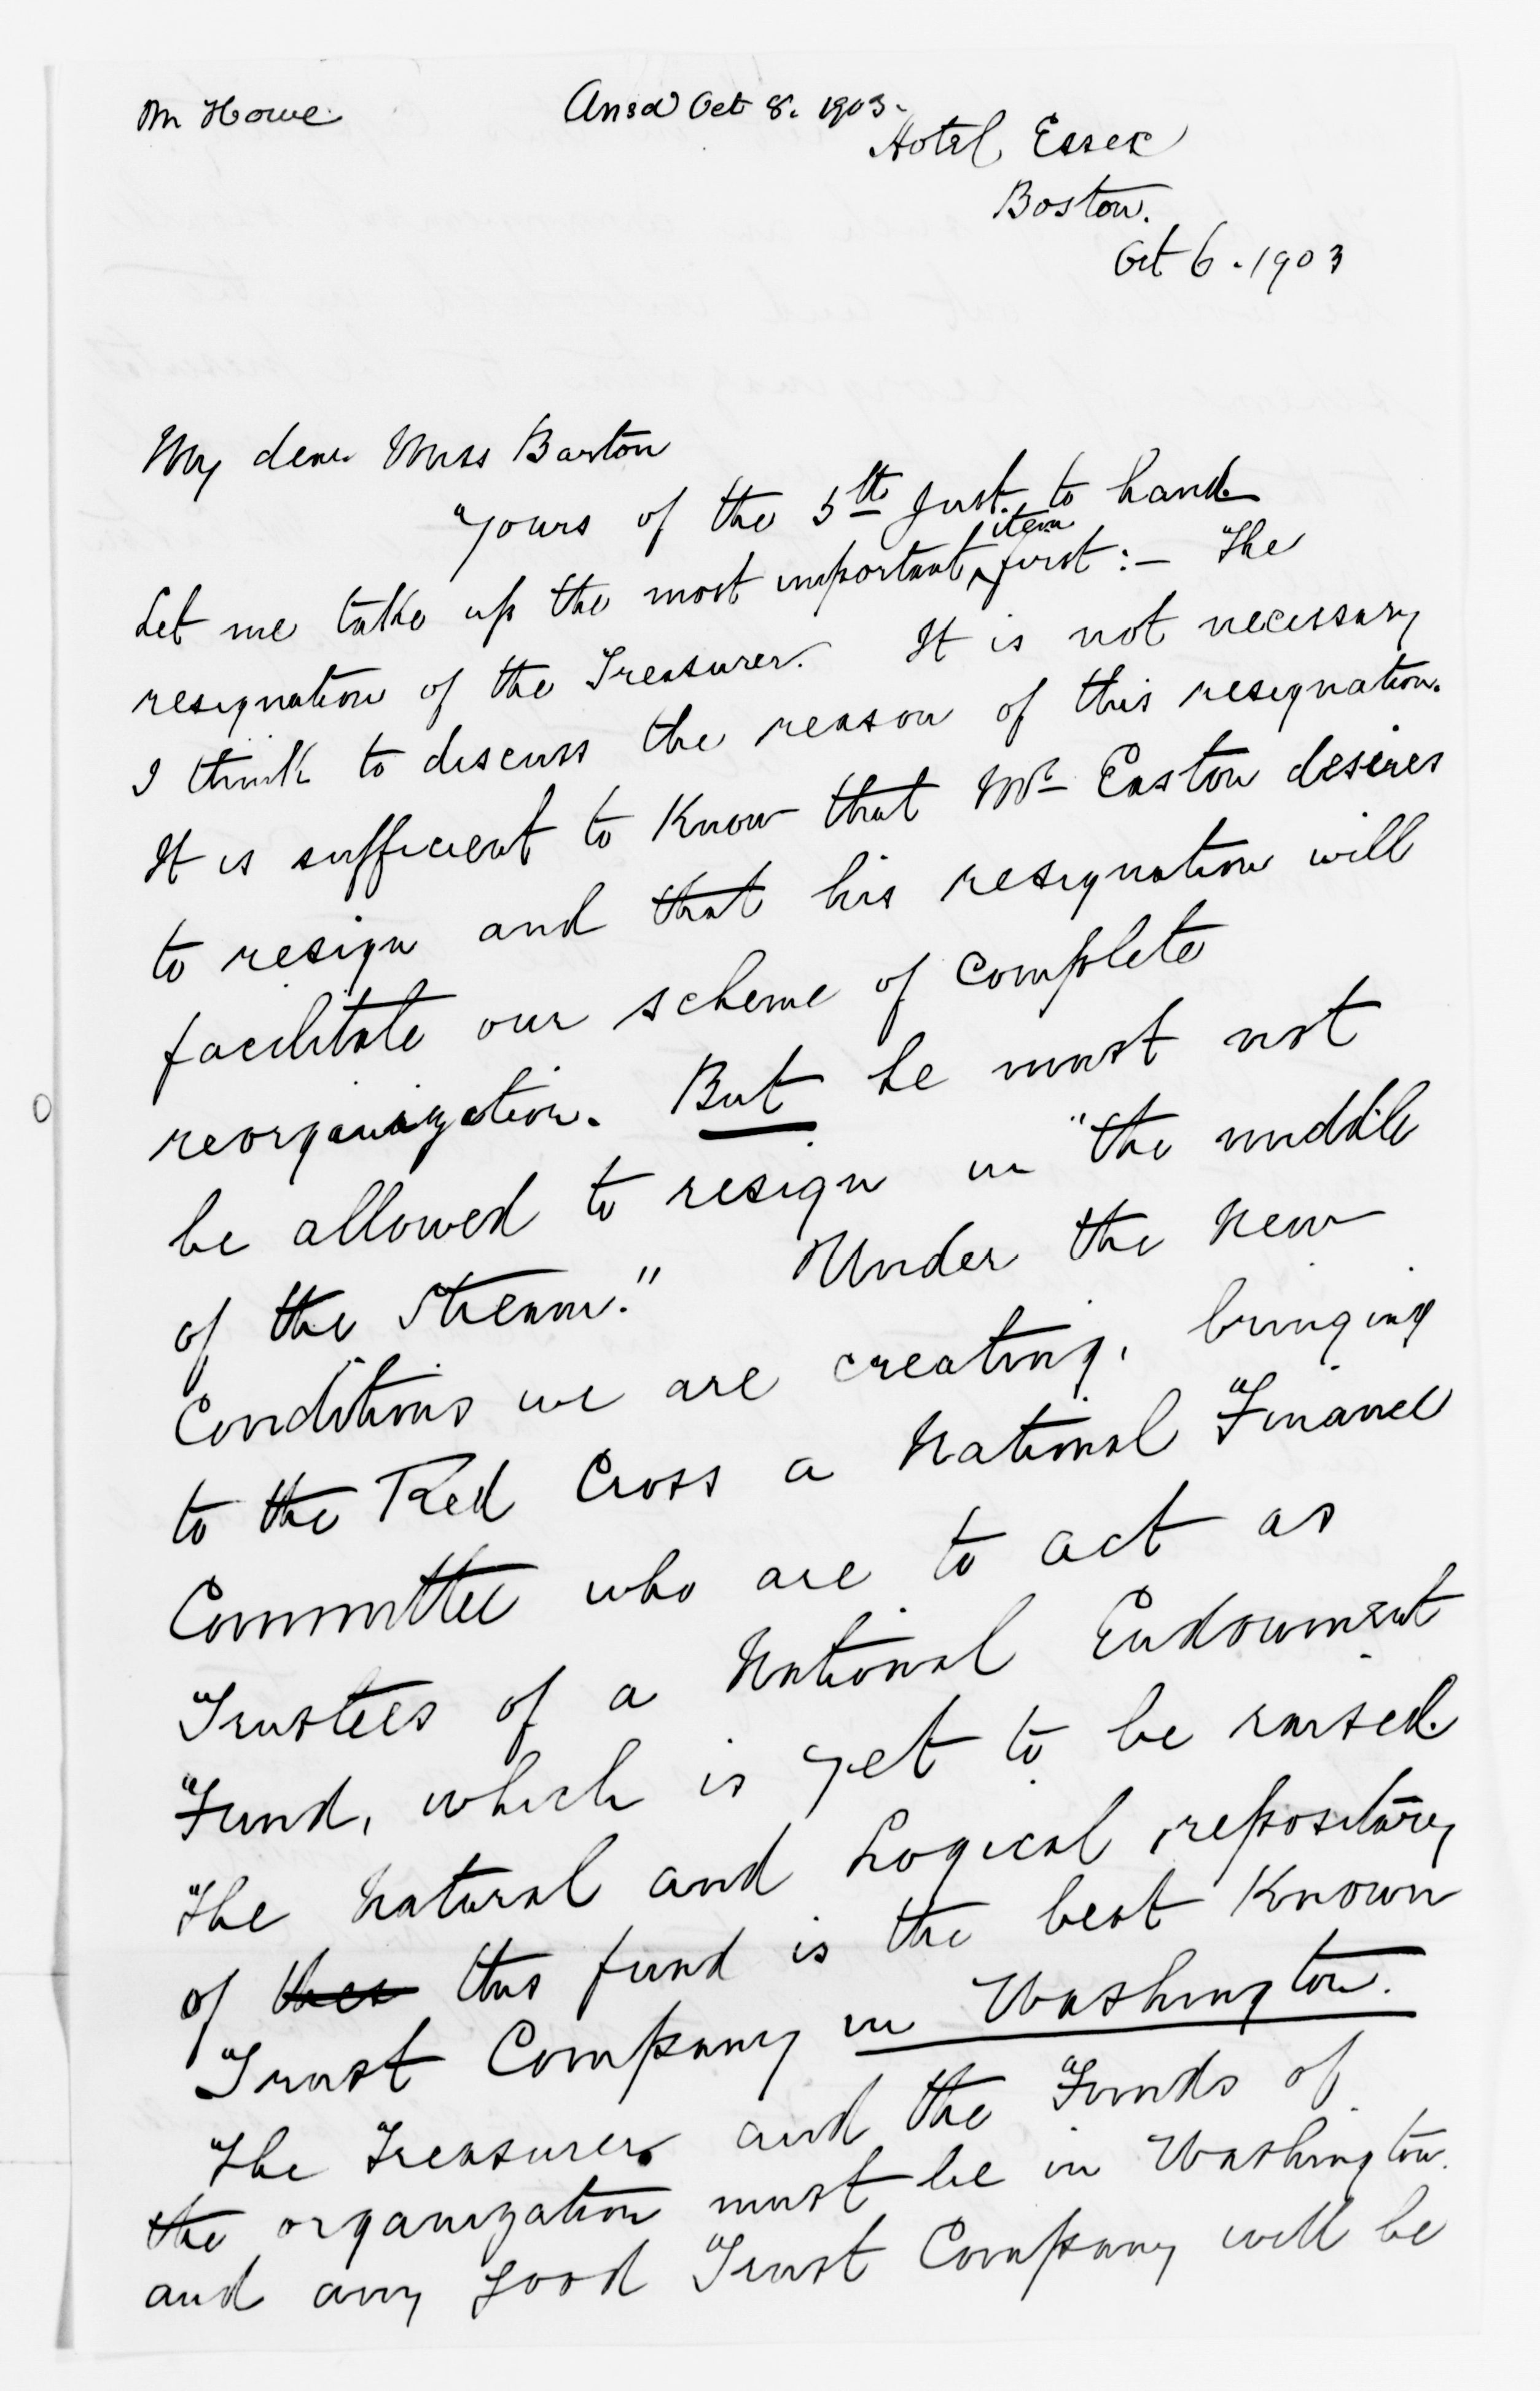 M Howe.
Ansd Oct 8. 1903.
Hotel Essex
Boston.
Oct 6. 1903
My dear Miss Barton
Yours of the 5th Inst. to hand.
Let me take up the most important item first:— The
resignation of the Treasurer. It is not necessary
I think to discuss the reason of this resignation.
It is sufficient to know that Mr Easton desires
to resign and that his resignation will
facilitate our scheme of complete
reorganization. But he must not
be allowed to resign in "the middle
of the stream." Under the new
Conditions we are creating, bringing
to the Red Cross a National Finance
Committee who are to act as
Trustees of a National Endowment
Fund, which is yet to be raised.
The natural and logical repository
of this fund is the best known
Trust Company in Washington.
The Treasurer and the Funds of
the organization must be in Washington.
and any good Trust Company will be